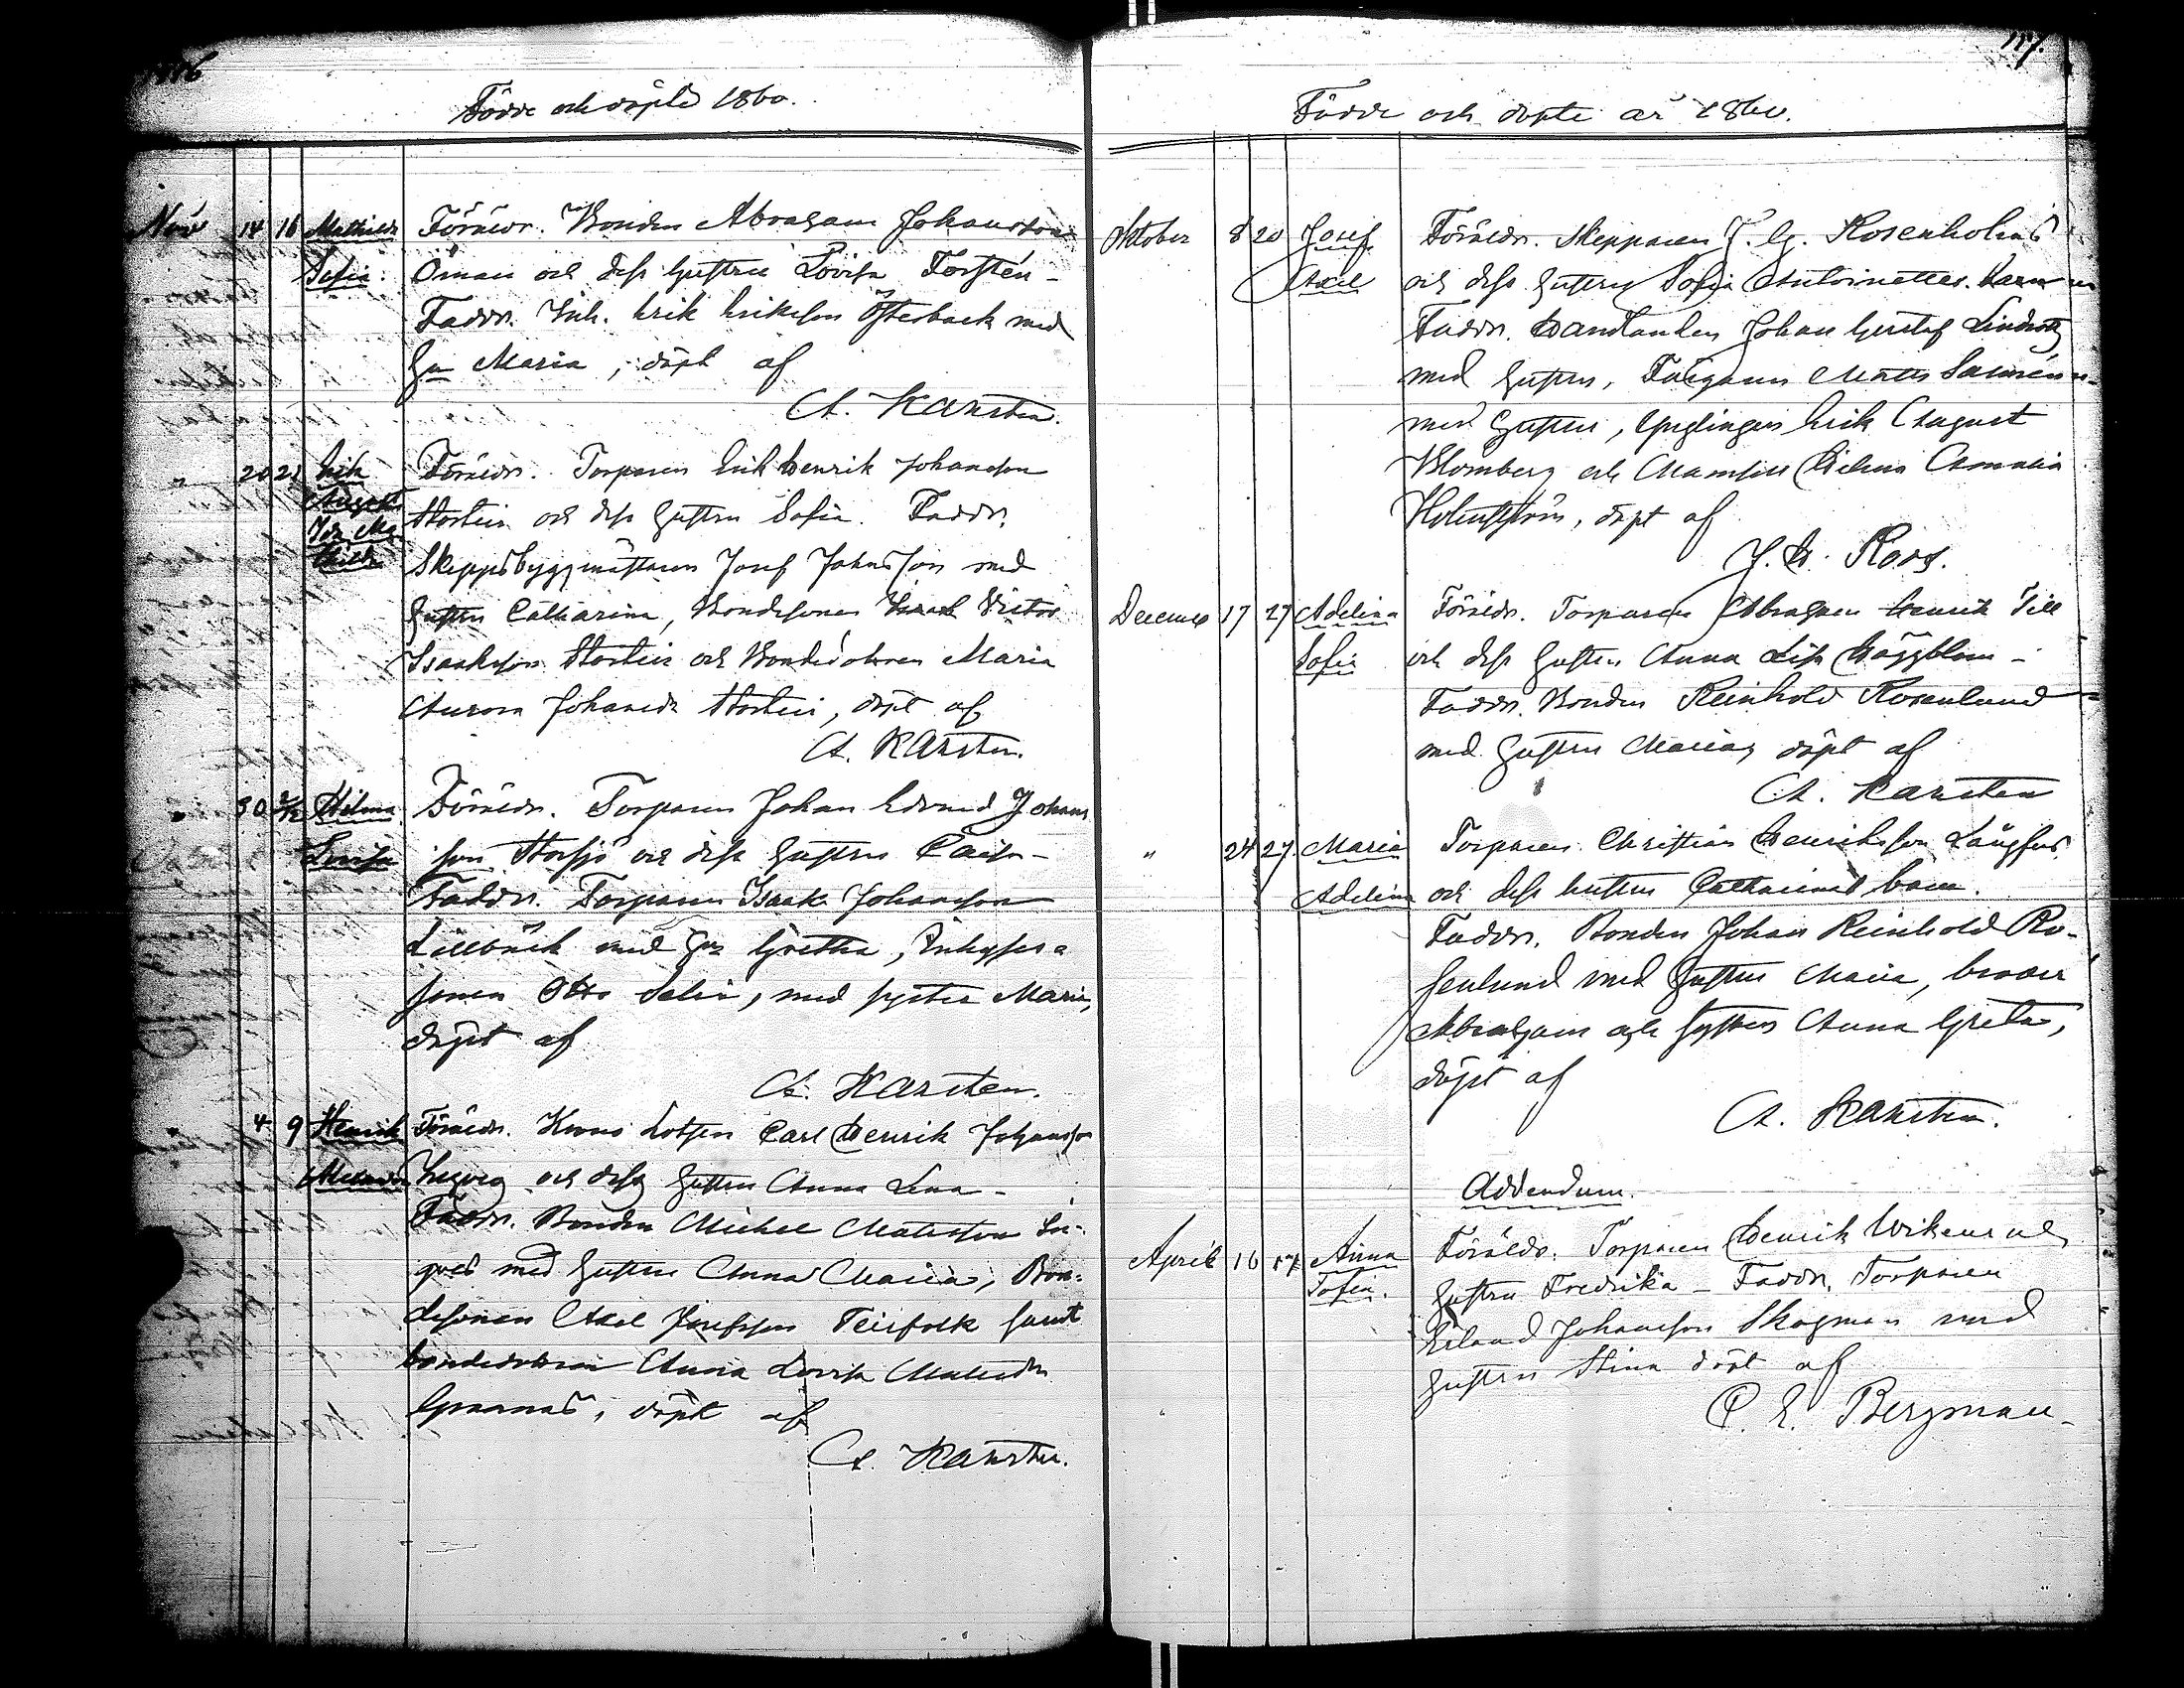 Födde och döpte 1860.
Nov 14 16 Mathilda Sofia. Föräldr. Bonden Abraham Johansson
Öman och dess hustru Lovisa Torstén -
Faddr. Inh. Erik Eriksson Österback med
hu Maria, döpt af
A. Karsten.
" 20 21 Erik August Föräldr. Torparen Erik Henrik Johansson
och dess hustru Sofia. Faddr.
Skeppsbyggmästaren Josef Johansson med
hustru Catharina, Bondesonen Victor
Isaksson och Bondedottren Maria
Aurora Johansdr döpt af
A. Karsten.
" 30 2/12 Hilma Lovisa Föräldr. Torparen Johan Edvard Johans
son Storsjö och dess hustru Caisa -
Faddr. Torparen Isaak Johansson
Lillbäck med hu Gretha, Inhysses
sonen Otto Selin, med syster Maria,
döpt af
A. Karsten.
" 4 9 Henrik Föräldr. Krono Lotsen Carl Henrik Johansson
och dess hustru Anna Lena -
Faddr. Bonden Michel Matsson
med hustru Anna Maria, Bon-
desonen Axel Josefsson Teirfolk samt
bondedottren Anna Lovisa Matsdr
döpt af
A. Karsten.
117.
Födde och döpte år 1860.
Oktober 8 20 Josef Axel Föräldr. Skepparen J. G. Rosenholms
och dess hustru Sofia Antoinettes barn
Faddr. Handlanden Johan Gustaf
med hustru, Färgaren Matts
med hustru, Ynglingen Erik August
Blomberg och Mamsell Amalia
Holmström, döpt af
J. H. Roos.
December 17 27 Adelina Sofia Föräldr. Torparen Abraham Henrik Sill
och dess hustru Anna Lisa Häggblom -
Faddr. Bonden Reinhold Rosenlund
med hustru Maria, döpt af
A. Karsten
" 24 27 Maria Adelina Torparen Christian Henriksson Långfors
och dess hustru Catharinas barn.
Faddr. Bonden Johan Reinhold Ro-
senlund med hustru Maria, broder
Abraham och systern Anna Greta,
döpt af
A. Karsten.
Addendum.
April 16 17 Anna Sofia. Föräldr. Torparen Henrik
hustru Fredrika - Faddr. Torparen
Erland Johansson Skogman med
hustru Stina döpt af
C. E. Bergman.